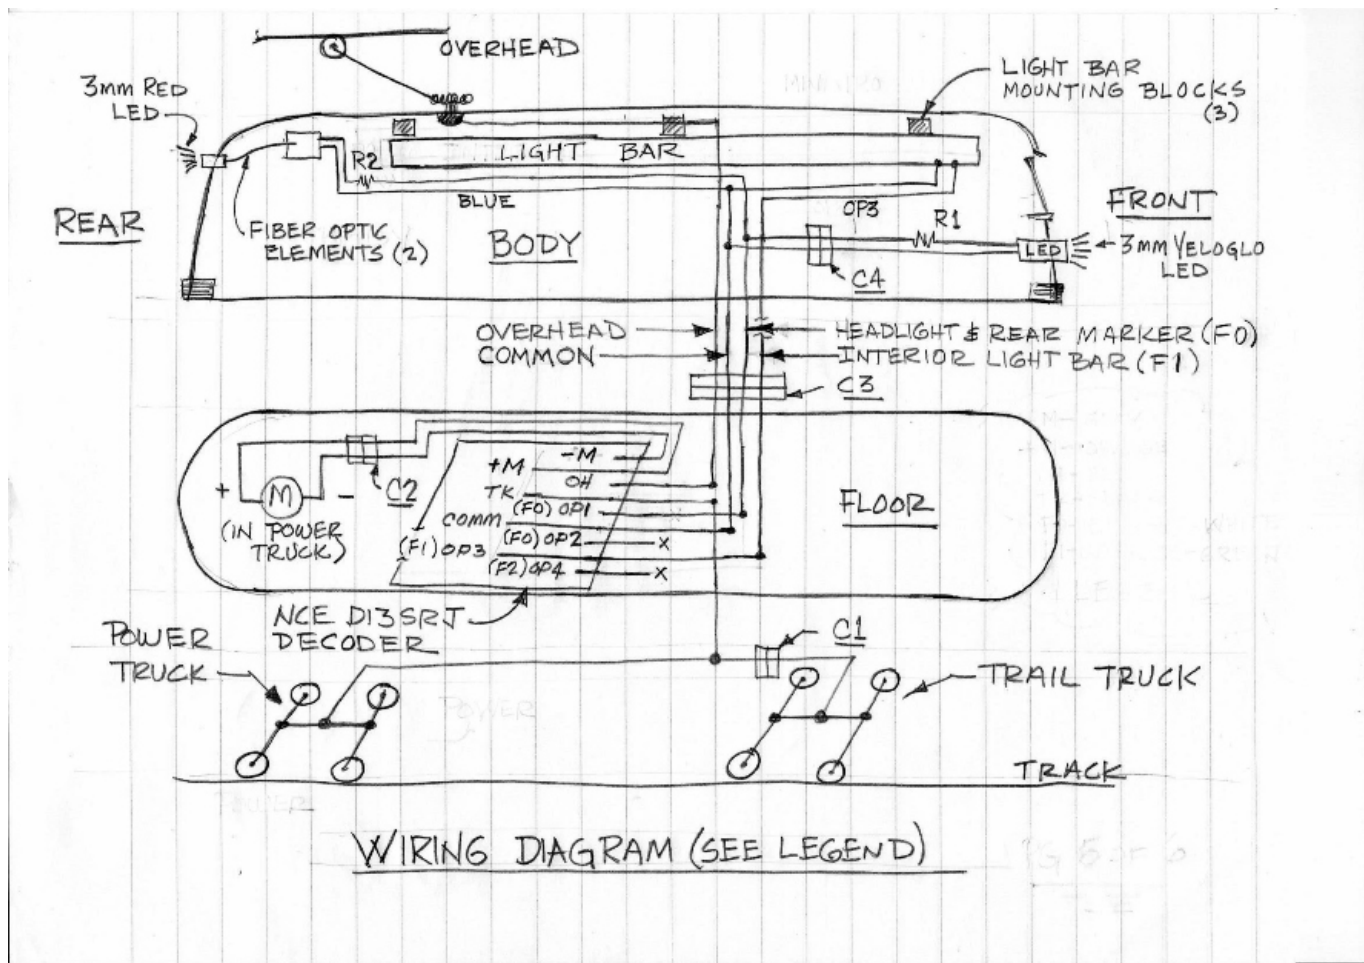 OVERHEAD
3mm RED
LED
LIGHT BAR
MOUNTING BLOCKS
(3)
LIGHT BAR
R2
BLUE
REAR
FIBER OPTIC
ELEMENTS (2)
BODY
OP3
R1
FRONT
LED
3mm YELOGLO
LED
C4
OVERHEAD
COMMON
HEADLIGHT & REAR MARKER (F0)
INTERIOR LIGHT BAR (F1)
C3
+
M
-
(IN POWER
TRUCK)
C2
-M
+M
OH
TK
(F0) OP1
X
COMM
(F0) OP2
X
(F1) OP3
(F2) OP4
X
FLOOR
NCE D13SRJ
DECODER
C1
POWER
TRUCK
TRAIL TRUCK
TRACK
WIRING DIAGRAM (SEE LEGEND)